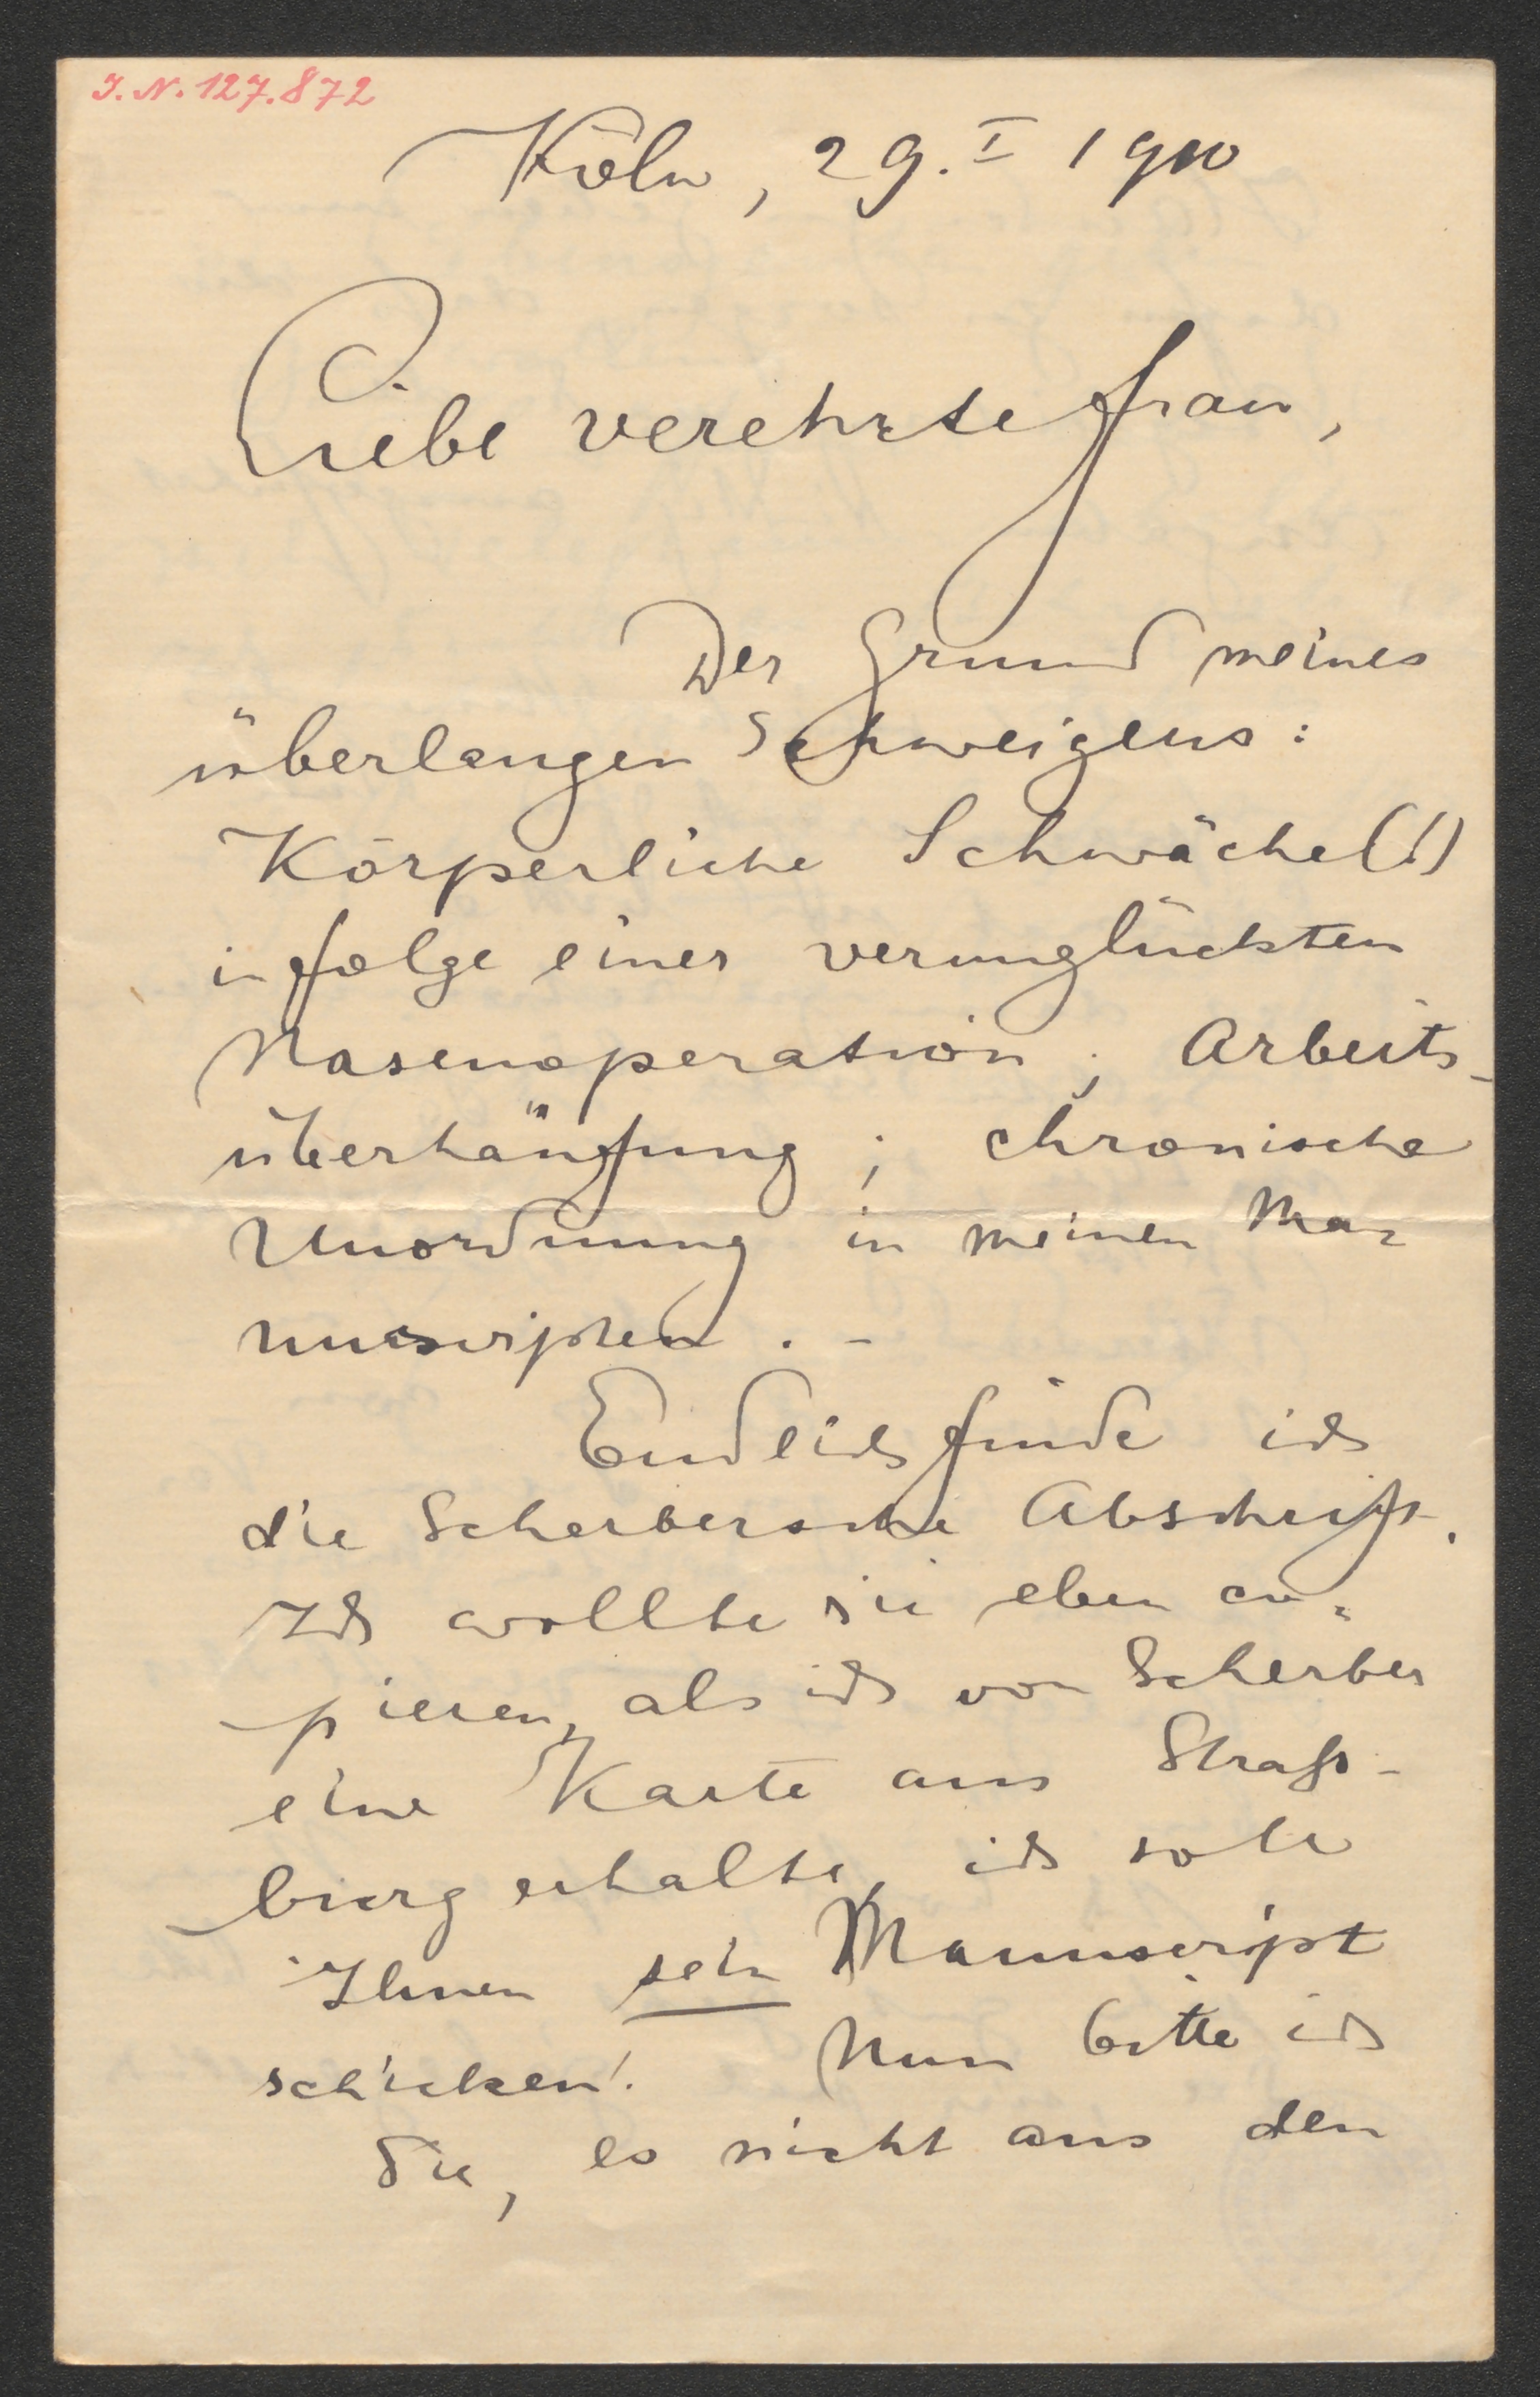 I. N. 127.872
Köln, 29. I 1910
Liebe verehrte Frau,
Der Grund meines
überlangen Schweigens:
Körperliche Schwäche (!)
infolge einer verunglückten
Nasenoperation; Arbeits-
überhäufung; chronische
Unordnung in meinen Ma-
nuscripten. -
Endlich finde ich
die Scherbersche Abschrift.
Ich wollte sie eben co-
pieren, als ich von Scherber
eine Karte aus Straß-
burg erhalte, ich solle
Ihnen sein Manuscript
schicken! Nun bitte ich
Sie, es nicht aus den